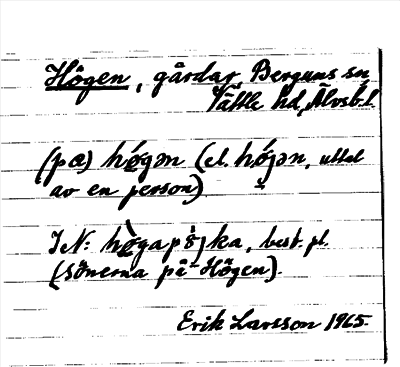 Högen, gårdar, Bergums sn,
Vättle hd, Älvsb. l.
(pa) hö́gən (el. hö́jən, uttal
av en person)
IN: hö̀gapö̀jka, best. pl.
(sönerna på Högen).
Erik Larsson 1965.